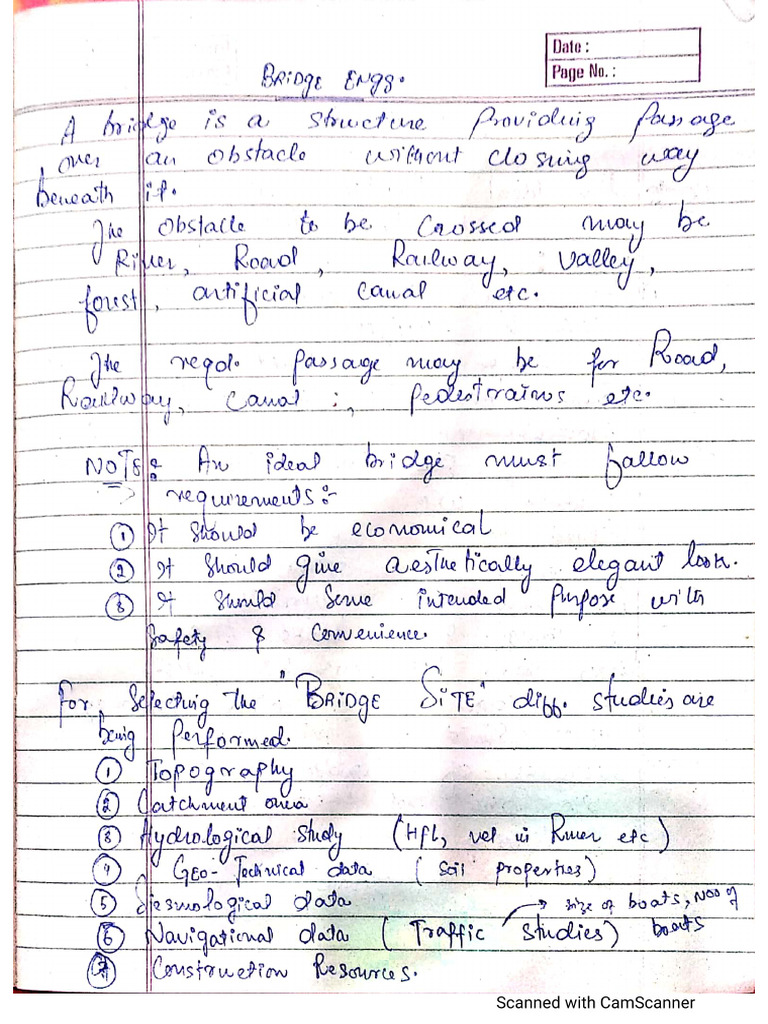 Date :
Page No. :
BRiDGE ENgg.
A bridge is a structure Providing Passage
over an obstacle without closing way
beneath it.
The obstacle to be crossed may be
River, Road, Railway, valley,
forest, artificial canal etc.
The reqd. passage may be for Road,
Railway, canal :, pedestrains etc.
NOTE: An ideal bridge must fallow
requirements:-
① It should be economical
② It should give aesthetically elegant look.
③ It should serve intended purpose with
safety & convenience.
For selecting the "BRiDGE SiTE" diff. studies are
being performed.
① Topography
② Catchment area
③ Hydrological study (Hfl, vel in River etc)
④ GEO-Technical data (Soil properties)
⑤ Seismological data
→ size of boats, Noo of
⑥ Navigational data (Traffic studies) boats
⑦ Construction Resources.
Scanned with CamScanner